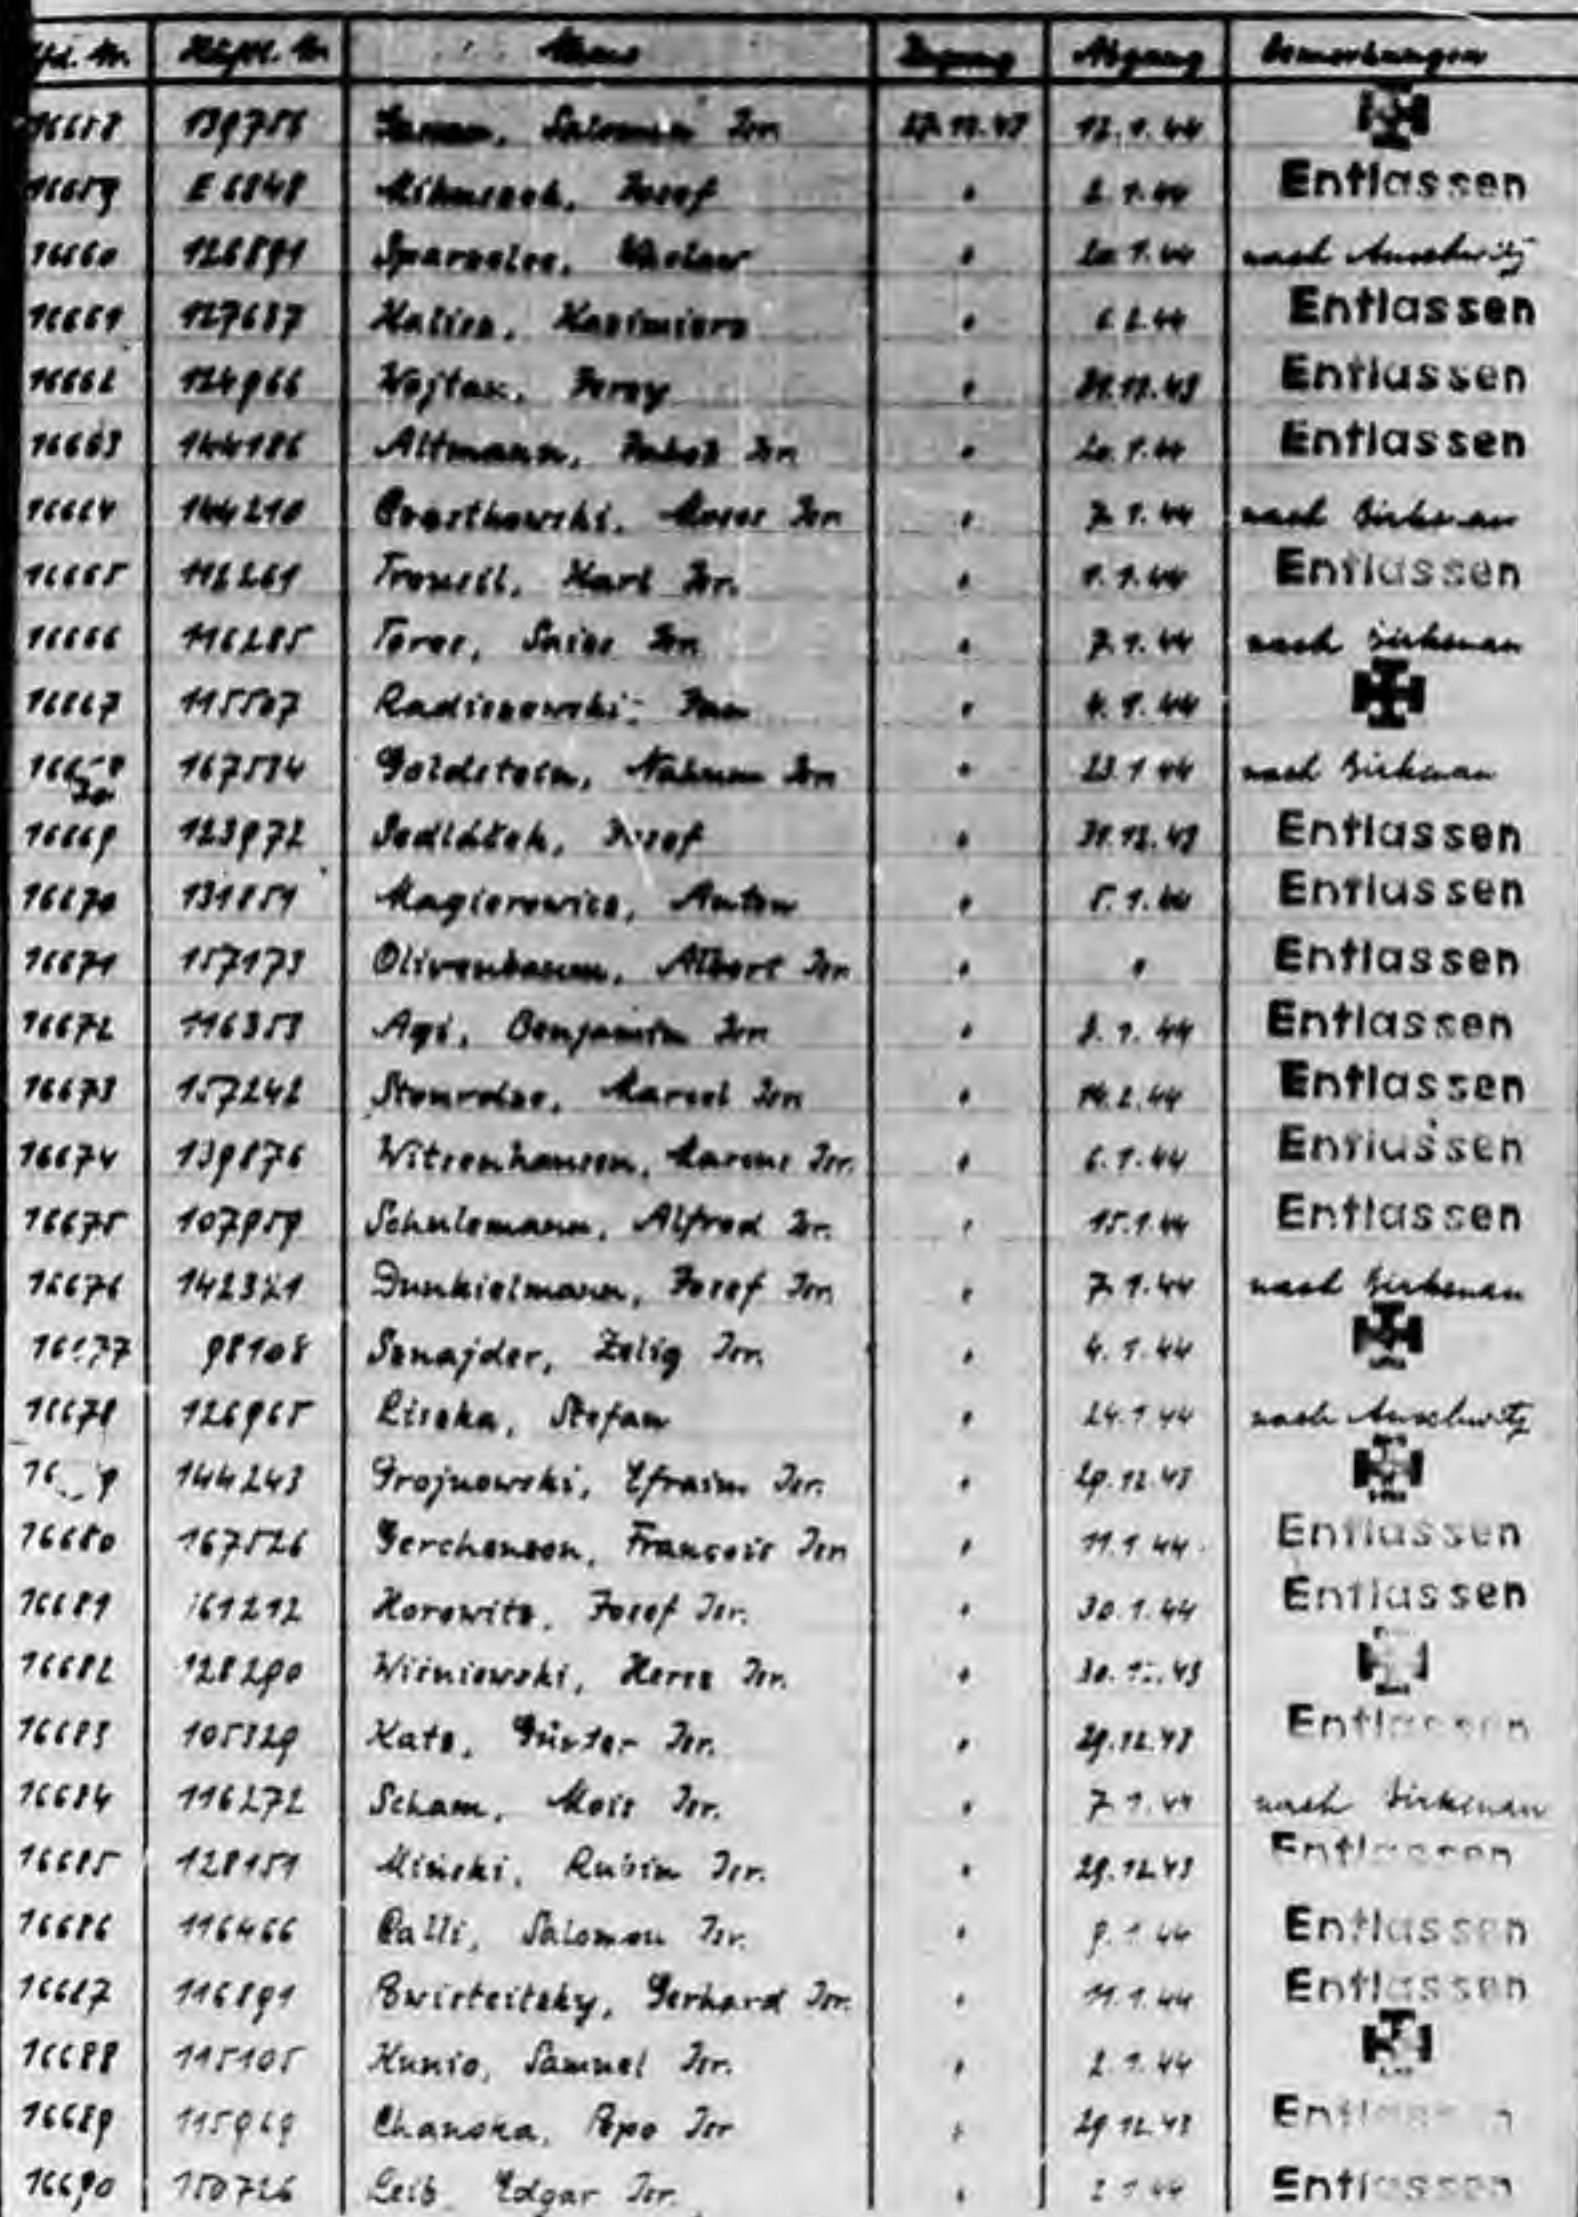 Lfd. Nr. Häftl. Nr. Name Zugang Abgang Bemerkungen
16658 Salomon Isr. 27.12.43 12.1.44
16659 E 6848 Josef " 2.1.44 Entlassen
16660 126891 " 20.1.44 nach Auschwitz
16661 127687 Kazimierz " 6.2.44 Entlassen
16662 124966 Wojtas, Jerzy " 31.12.43 Entlassen
16663 144186 Altmann, Jakob Isr. " 20.1.44 Entlassen
16664 144210 Moses Isr. " 7.1.44 nach Birkenau
16665 116261 Karl Isr. " 1.1.44 Entlassen
16666 116285 Isr. " 7.1.44 nach Birkenau
16667 115507 Radiszewski, " 4.1.44
167534 Goldstein, Isr. " 23.1.44 nach Birkenau
16669 123972 Sedláček, Josef " 31.12.43 Entlassen
16670 131851 Magierowicz, Anton " 5.1.44 Entlassen
16671 157173 Olivenbaum, Albert Isr. " " Entlassen
16672 116353 Agi, Benjamin Isr. " 8.1.44 Entlassen
16673 157242 Marcel Isr. " 14.2.44 Entlassen
16674 139876 Witzenhausen, Marcus Isr. " 6.1.44 Entlassen
16675 107959 Schulemann, Alfred Isr. " 15.1.44 Entlassen
16676 142321 Dunkielmann, Josef Isr. " 7.1.44 nach Birkenau
16677 98108 Sznajder, Zelig Isr. " 4.1.44
16678 126965 Liszka, Stefan " 24.1.44 nach Auschwitz
144243 Grojnowski, Efraim Isr. " 29.12.43
16680 167526 Gerchenson, François Isr. " 11.1.44 Entlassen
16681 161212 Horowitz, Josef Isr. " 30.1.44 Entlassen
16682 128290 Wiśniewski, Hersz Isr. " 30.12.43
16683 105329 Katz, Günter Isr. " 29.12.43 Entlassen
16684 116272 Scham, Mois Isr. " 7.1.44 nach Birkenau
16685 128151 Miński, Rubin Isr. " 29.12.43 Entlassen
16686 116466 Calli, Salomon Isr. " 9.1.44 Entlassen
16687 116891 Swirteitzky, Gerhard Isr. " 11.1.44 Entlassen
16688 115105 Kunio, Samuel Isr. " 2.1.44
16689 115969 Chanoka, Pepo Isr " 29.12.43 Entlassen
16690 150726 Leib Edgar Isr. " 2.1.44 Entlassen